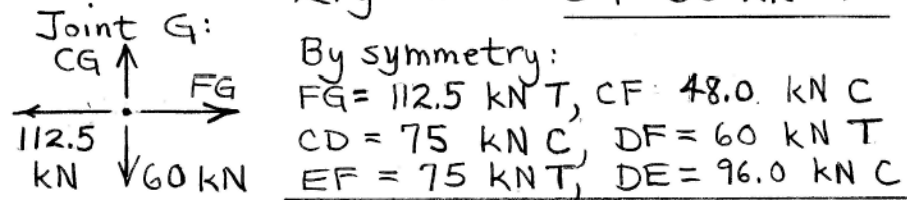 Joint G:
CG
FG
112.5
kN
60 kN
By symmetry:
FG = 112.5 kN T, CF 48.0 kN C
CD = 75 kN C, DF = 60 kN T
EF = 75 kN T, DE = 96.0 kN C